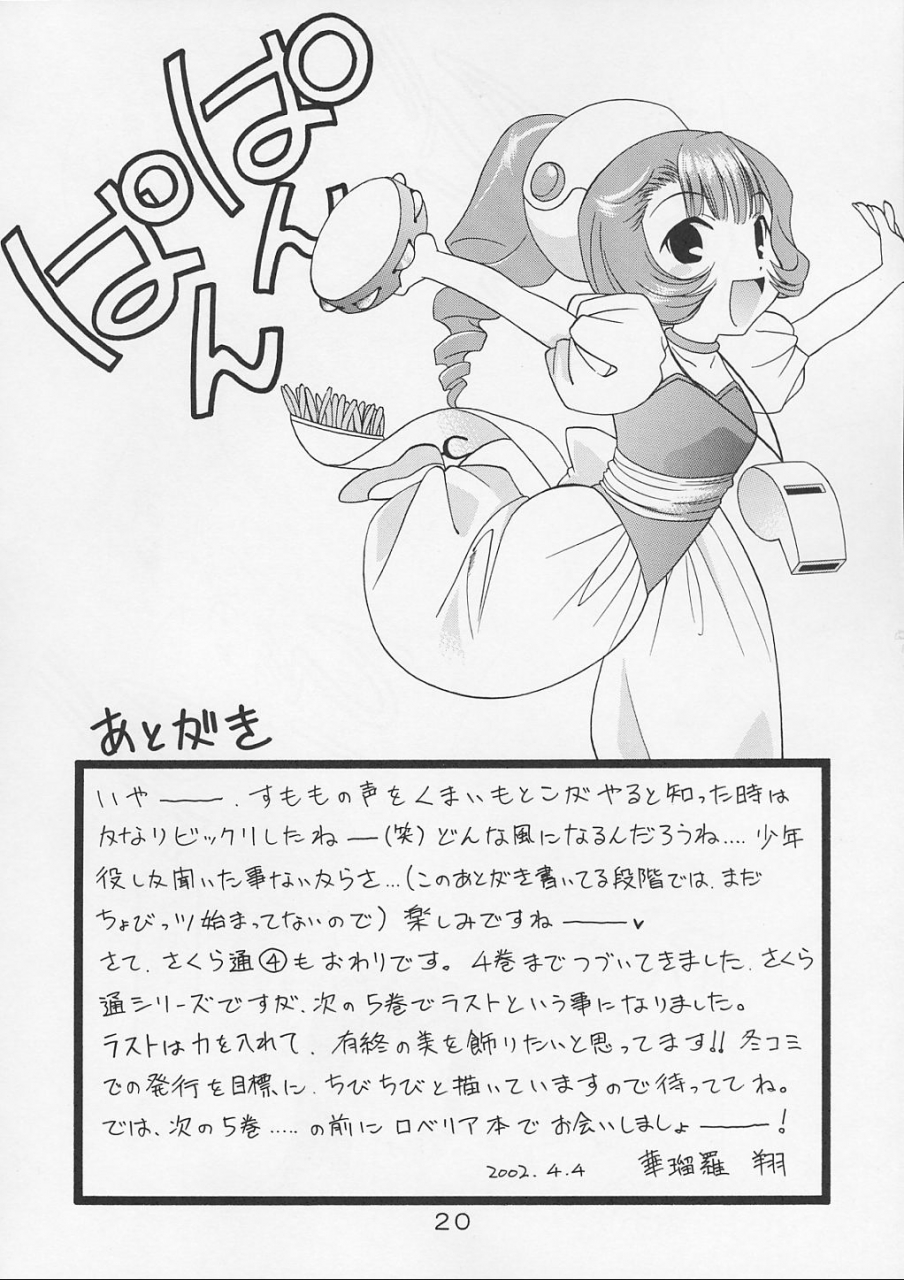 ぱぱん
ぱん
あとがき
いや――. すももの声をくまいもとこがやると知った時は
かなりビックリしたね―(笑) どんな風になるんだろうね.... 少年
役しか聞いた事ないからさ...(このあとがき書いてる段階では、まだ
ちょびっツ始まってないので) 楽しみですね――♥
さて、さくら通④もおわりです。4巻までつづいてきました、さくら
通シリーズですが、次の5巻でラストという事になりました。
ラストは力を入れて、有終の美を飾りたいと思ってます!! 冬コミ
での発行を目標に、ちびちびと描いていますので待っててね。
では、次の5巻.....の前にロベリア本でお会いしましょ――!
2002.4.4 華瑠羅 翔
20